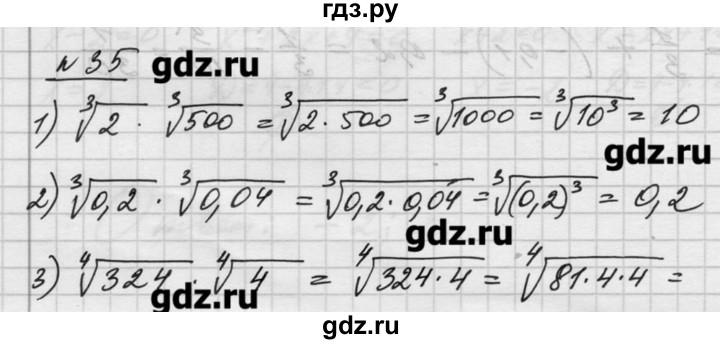 гдз.ру
№ 35
gdz.ru
1) ∛2 · ∛500 = ∛2·500 = ∛1000 = ∛10³ = 10
gdz.ru
2) ∛0,2 · ∛0,04 = ∛0,2·0,04 = ∛(0,2)³ = 0,2
gdz.ru
3) ∜324 · ∜4 = ∜324·4 = ∜81·4·4 =
gdz.ru
gdz.ru